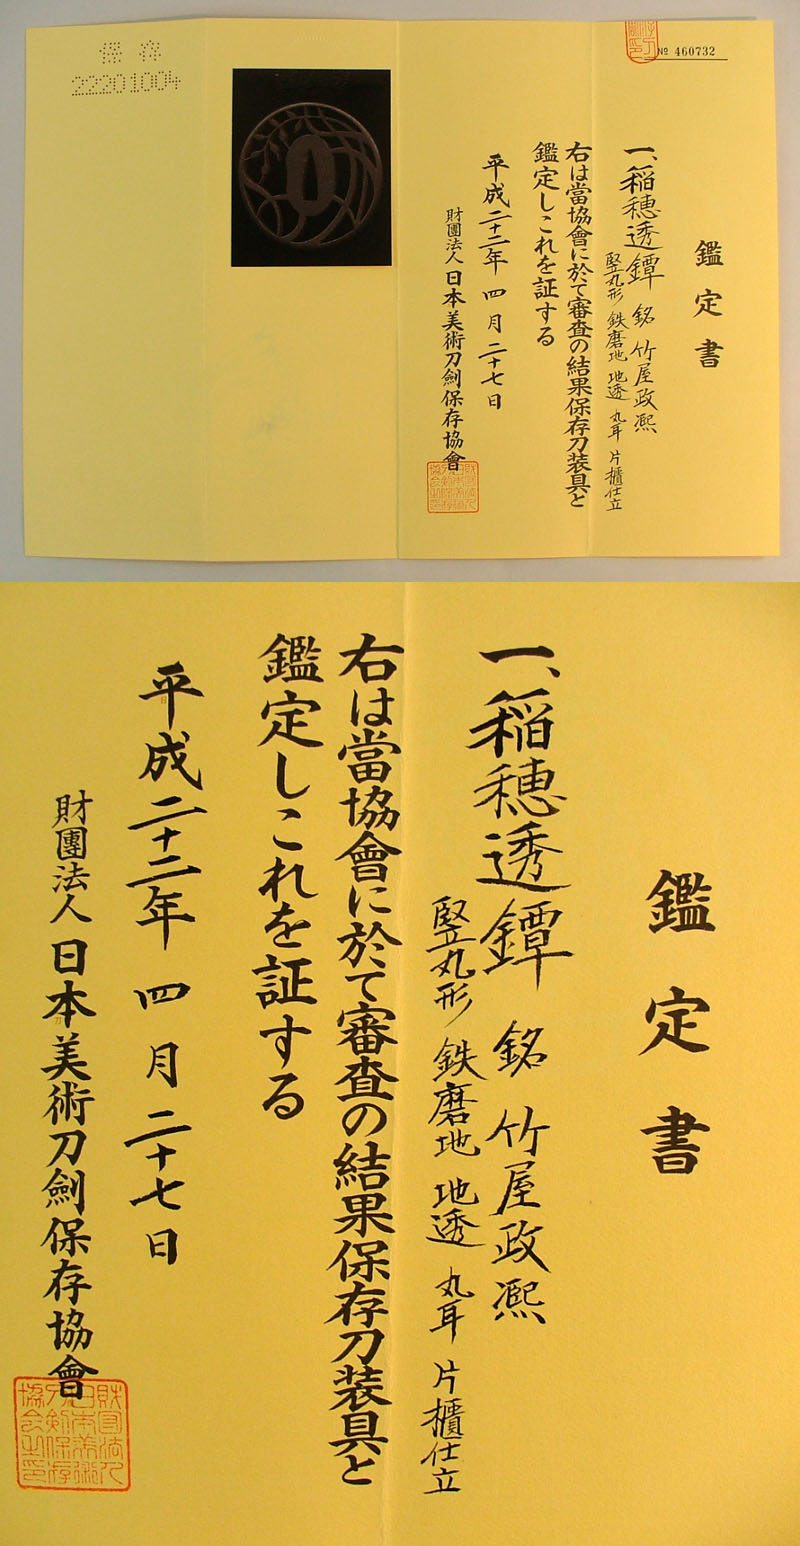 保存
22201004
№ 460732
鑑定書
一、稲穂透鐔 銘 竹屋政凞
竪丸形 鉄磨地 地透 丸耳 片櫃仕立
右は當協會に於て審査の結果保存刀装具と
鑑定しこれを証する
平成二十二年 四月 二十七日
財團法人 日本美術刀劍保存協會
鑑定書
一、稲穂透鐔 銘 竹屋政凞
竪丸形 鉄磨地 地透 丸耳 片櫃仕立
右は當協會に於て審査の結果保存刀装具と
鑑定しこれを証する
平成二十二年 四月 二十七日
財團法人 日本美術刀劍保存協會